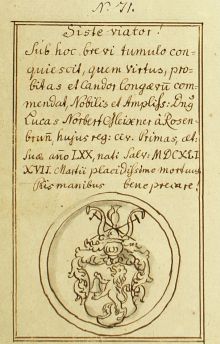 N. 71.
Siste viator!
Sub hoc brevi tumulo con-
quiescit, quem virtus, pro-
bitas et candor longævũ com-
mendat, Nobilis et Ampliss: Dnꝰ
Lucas Norbert Meixner à Rosen-
brun̄, hujus reg: civ. Primas, æt:
suæ año LXX, nati Salv: MDCXLI
XVII. Martii placidissimo mortuus
Pis manibus bene precare!